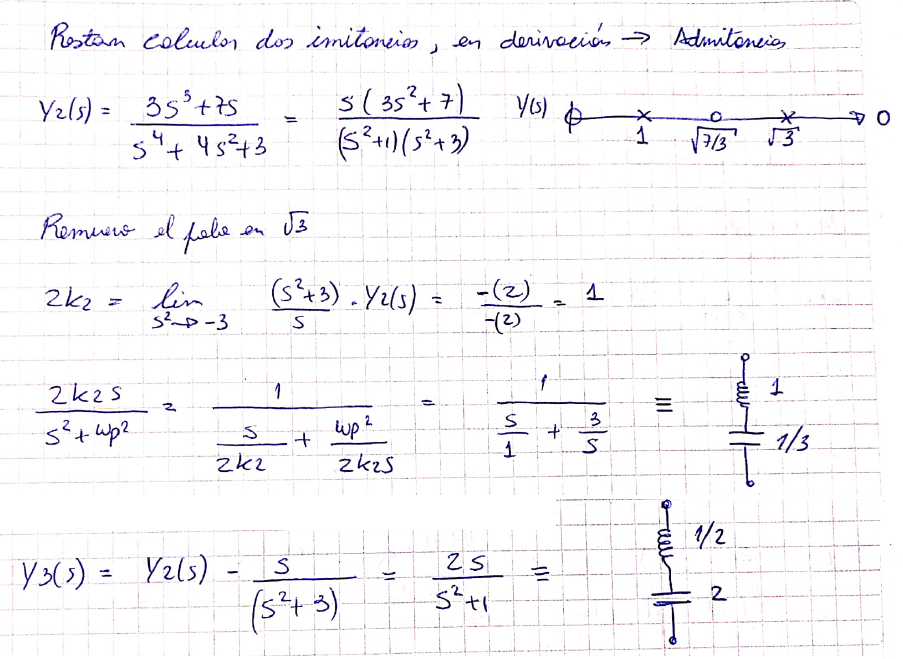 Restan calcular dos imitancias, en derivación → Admitancias
Y2(s) = (3s³+7s)/(s⁴+4s²+3) = s(3s²+7)/((s²+1)(s²+3)) Y(s) 1 √7/3 √3 0
Remuevo el polo en √3
2k2 = lim s²→-3 (s²+3)/s · Y2(s) = -(2)/-(2) = 1
2k2s/(s²+wp²) = 1/(s/2k2 + wp²/2k2s) = 1/(s/1 + 3/s) ≡ 1 1/3
Y3(s) = Y2(s) - s/(s²+3) = 2s/(s²+1) ≡ 1/2 2